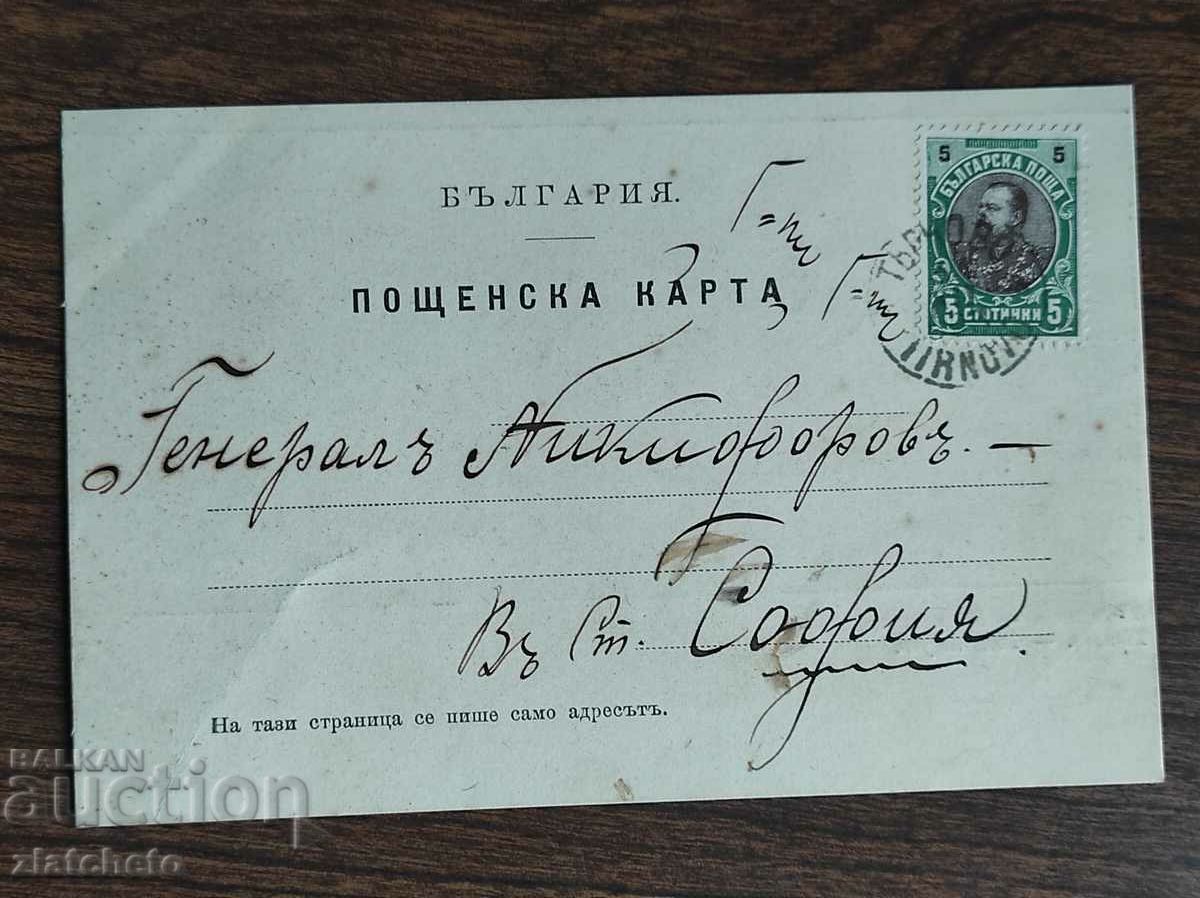 БЪЛГАРИЯ.
ПОЩЕНСКА КАРТА
5 5
БЪЛГАРСКА ПОЩА
5 СТОТИНКИ 5
Г-нъ
Г-нъ
Генералъ Никифоровъ. —
Въ Ст. София
На тази страница се пише само адресътъ.
BALKAN
auction
zlatcheto